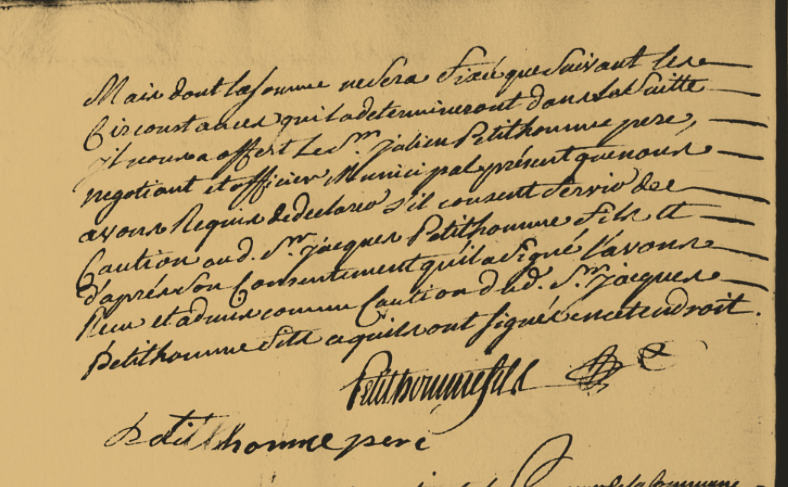 Mais dont la somme ne sera fixée que suivant les
Circonstances qui la determineront dans la suitte
il nous a offert Le S.r Julien Petithomme pere,
negotiant et officier Municipal présent que nous
avons Requis de declarer s'il consent servir de
Caution aud. S.r Jacques Petithomme fils et
d'après son Consentement qu'il a signé l'avons
Recu et admis comme Caution dud. S.r Jacques
Petithomme fils ce qu'ils ont signés en cet endroit.
Petithomme fils
Petithomme pere
de la Commune